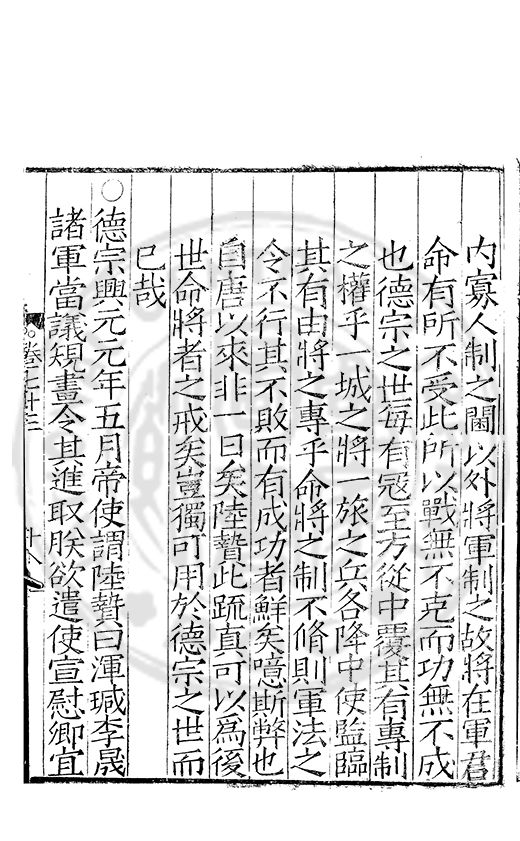 內寡人制之閫以外將軍制之故將在軍君
命有所不受此所以戰無不克而功無不成
也德宗之世每有寇至方從中覆其有專制
之權乎一城之將一旅之兵各降中使監臨
其有由將之專乎命將之制不脩則軍法之
令不行其不敗而有成功者鮮矣噫斯弊也
自唐以來非一日矣陸贄此疏真可以為後
世命將者之戒矣豈獨可用於德宗之世而
已哉
○德宗興元元年五月帝使謂陸贄曰渾瑊李晟
諸軍當議規畫令其進取朕欲遣使宣慰卿宜